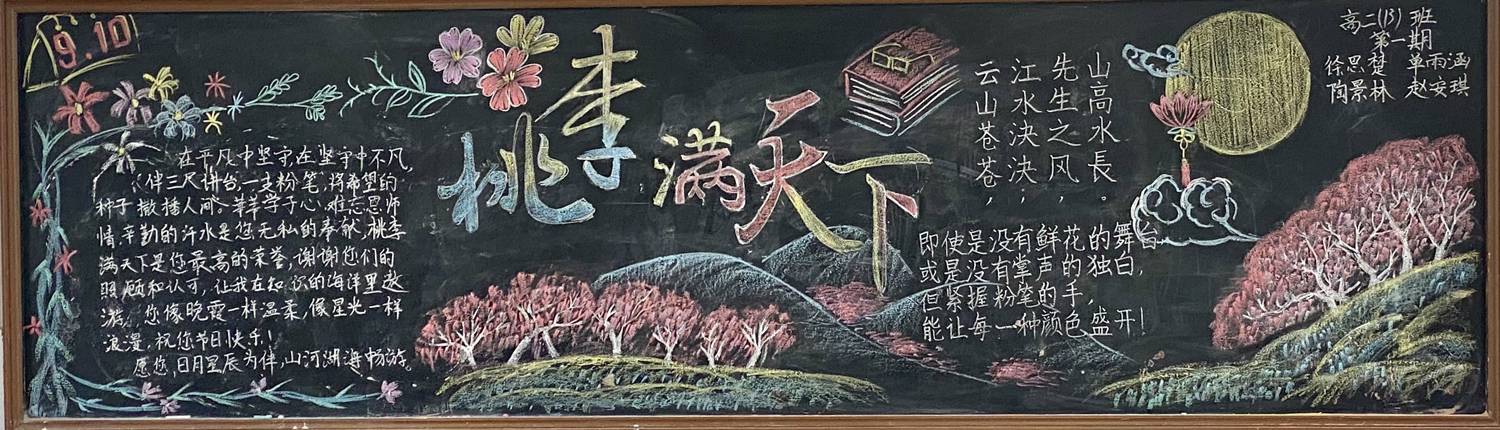 9.10
桃李满天下
在平凡中坚守,在坚守中不凡,
伴三尺讲台,一支粉笔,将希望的
种子撒播人间。莘莘学子心,难忘恩师
情,辛勤的汗水是您无私的奉献,桃李
满天下是您最高的荣誉,谢谢您们的
照顾和认可,让我在知识的海洋里遨
游。您像晚霞一样温柔,像星光一样
浪漫,祝您节日快乐!
愿您,日月星辰为伴,山河湖海畅游。
云山苍苍,
江水泱泱,
先生之风,
山高水長。
即使是没有鲜花的舞台,
或是没有掌声的独白,
但紧握粉笔的手,
能让每一种颜色盛开!
高二(13)班
第一期
徐思楚 单雨涵
陶景林 赵安琪